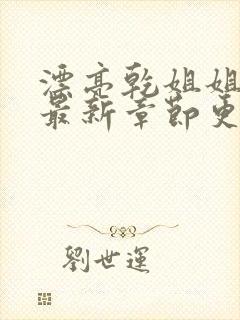 漂亮乾姐姐
最新章節更
劉世運